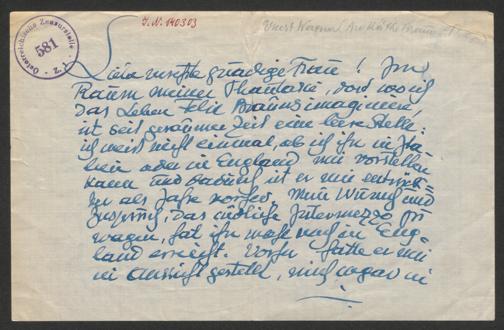 Österreichische Zensurstelle
581
- Z. -
I.N. 140303
Liebe verehrte gnädige Frau! Im
Raum meiner Phantasie, dort wo ich
das Leben Felix Brauns imaginiere
ist seit geraumer Zeit eine leere Stelle:
ich weiss nicht einmal, ob ich ihn in Ita-
lien oder in England mir vorstellen
kann und dadurch ist er mir entrück-
ter als Jahre vorher. Mein Wunsch und
das südliche Intermezzo zu
wagen, hat ihn wohl noch in Eng-
land erreicht. Vorher hatte er mir
in Aussicht gestellt, mich sogar in